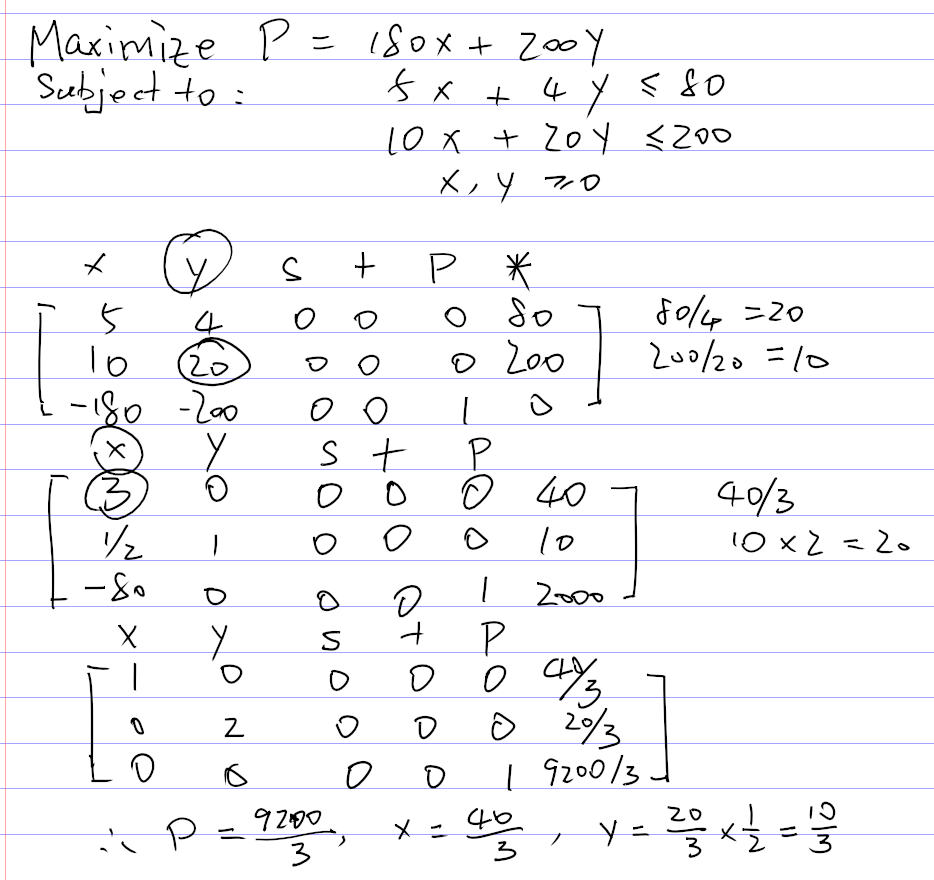 Maximize P = 180x + 200y
Subject to: 5x + 4y ≤ 80
10x + 20y ≤ 200
x, y ≥ 0
x y s t P *
5 4 0 0 0 80 80/4 = 20
10 20 0 0 0 200 200/20 = 10
-180 -200 0 0 1 0
x y s t P
3 0 0 0 0 40 40/3
1/2 1 0 0 0 10 10 × 2 = 20
-80 0 0 0 1 2000
x y s t P
1 0 0 0 0 40/3
0 2 0 0 0 20/3
0 0 0 0 1 9200/3
∴ P = 9200/3, x = 40/3, y = 20/3 × 1/2 = 10/3